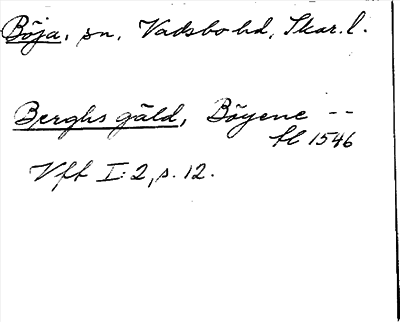 Böja, sn, Vadsbo hd, Skar. l.
Berghs gäld, Böyene --
fl 1546
Vff I:2, s. 12.